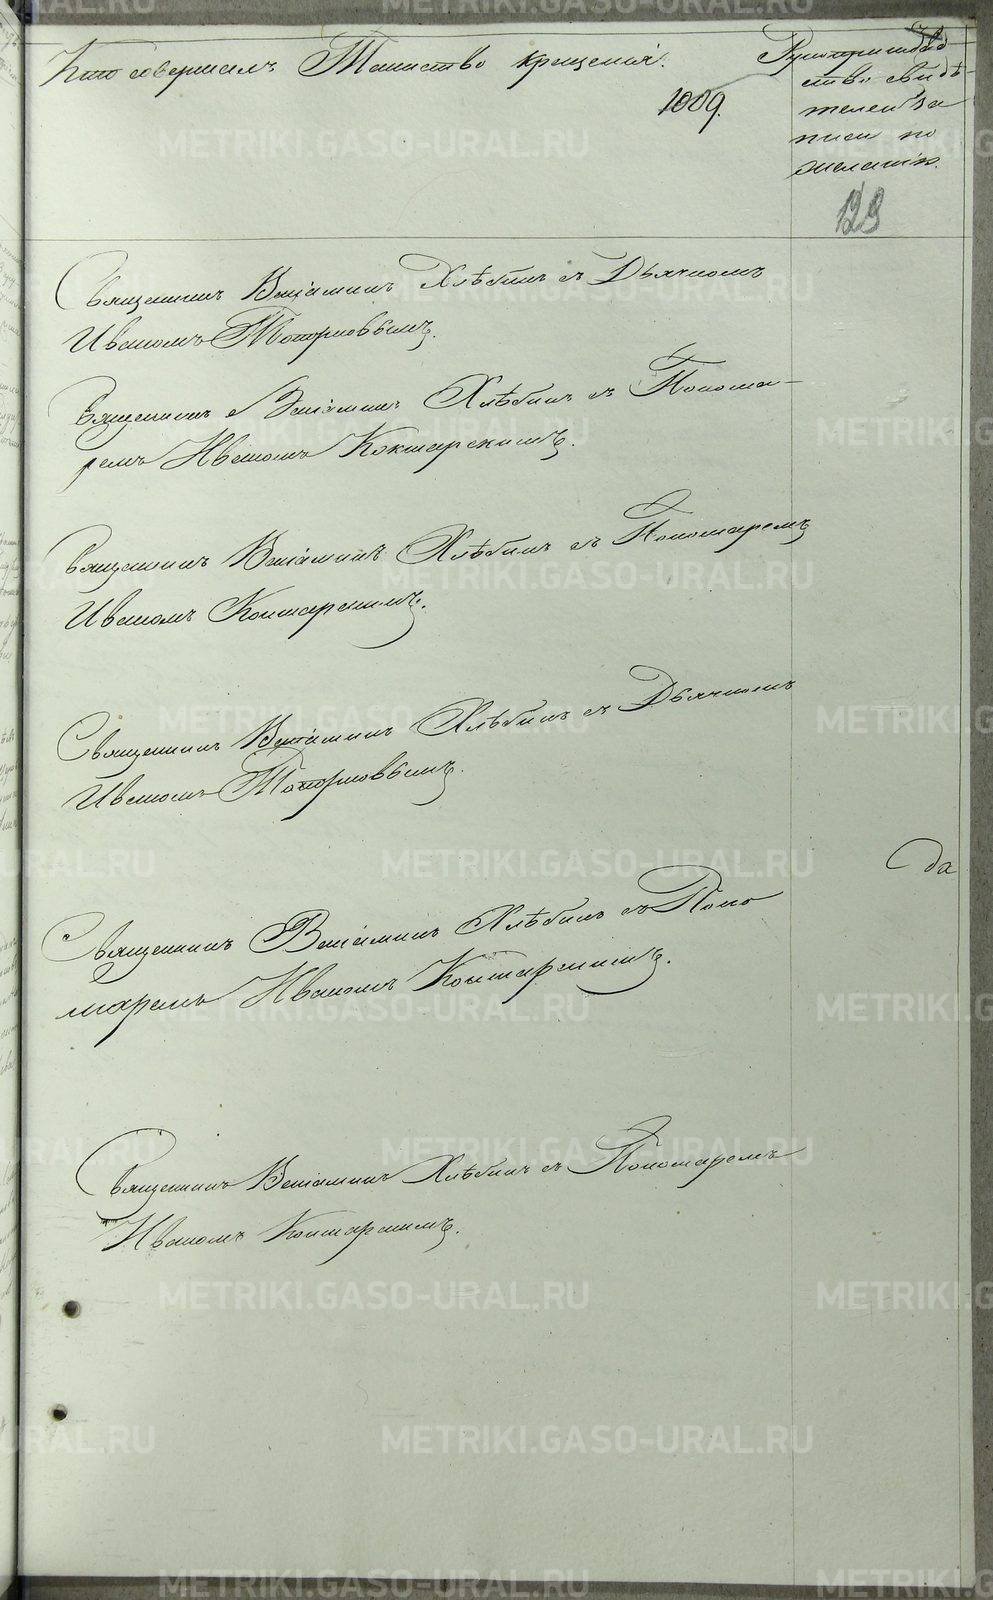 Кто совершалъ Таинство крещенія.
1009.
Рукоприклад
ство свидѣ-
телей за
писи по
желанію.
129
Священникъ Веніаминъ Хлѣбинъ съ Дьячкомъ
Иваномъ Топорковымъ.
Священникъ Веніаминъ Хлѣбинъ съ Понома-
ремъ Иваномъ Кокшарскимъ.
Священникъ Веніаминъ Хлѣбинъ съ Пономаремъ
Иваномъ Кокшарскимъ.
Священникъ Веніаминъ Хлѣбинъ съ Дьячкомъ
Иваномъ Топорковымъ.
да
Священникъ Веніаминъ Хлѣбинъ съ Поно
маремъ Иваномъ Кокшарскимъ.
Священникъ Веніаминъ Хлѣбинъ съ Пономаремъ
Иваномъ Кокшарскимъ.
METRIKI.GASO-URAL.RU